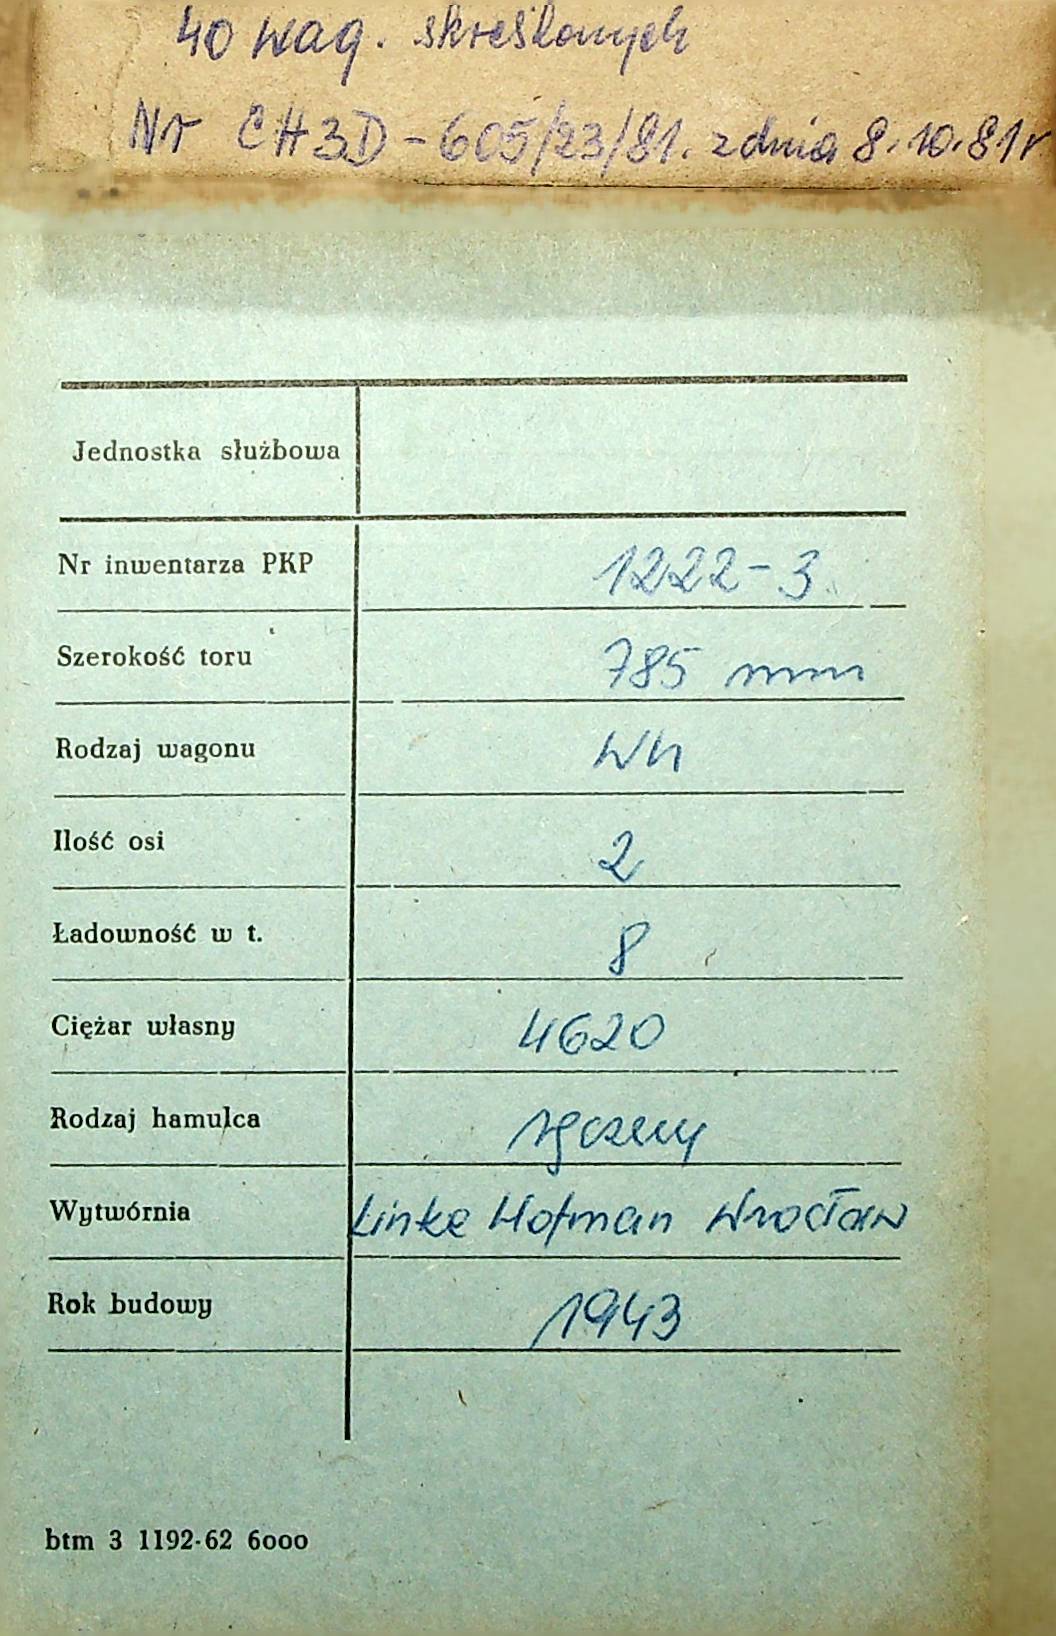 40 wag. skreślonych
Nr CH3D-605/23/81. z dnia 8.10.81r
Jednostka służbowa
Nr inwentarza PKP 1222-3
Szerokość toru 785 mm
Rodzaj wagonu Wh
Ilość osi 2
Ładowność w t. 8
Ciężar własny 4620
Rodzaj hamulca ręczny
Wytwórnia Linke Hofman Wrocław
Rok budowy 1943
btm 3 1192-62 6000